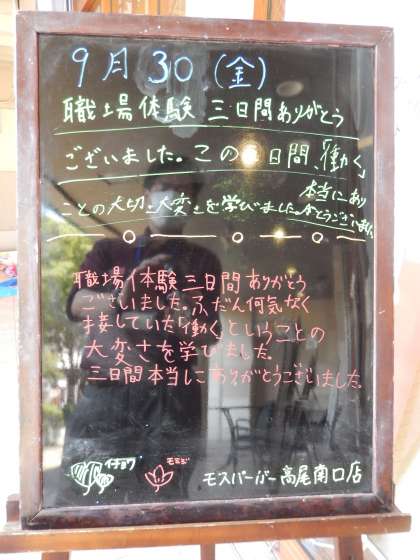 9月30(金)
職場体験 三日間ありがとう
ございました。この 日間、「働く」
ことの大切さ大変さを学びました。
本当にあり
がとうございました
職場体験三日間ありがとう
ございました。ふだん何気なく
接していた「働く」ということの
大変さを学びました。
三日間本当にありがとうございました。
イチョウ
モミジ
モスバーガー高尾南口店